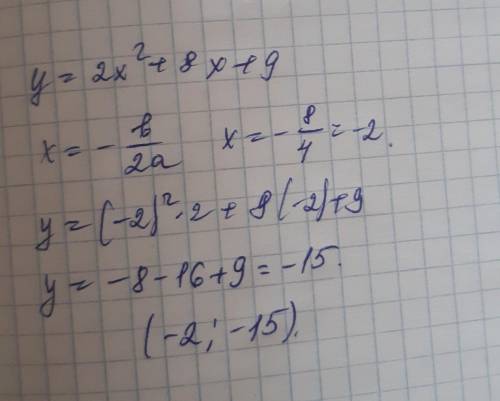 y = 2x² + 8x + 9
x = - b/2a   x = - 8/4 = -2.
y = (-2)² · 2 + 8(-2) + 9
y = -8 - 16 + 9 = -15.
(-2; -15).